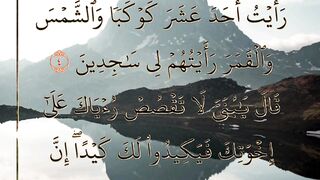 رَأَيْتُ أَحَدَ عَشَرَ كَوْكَبًا وَٱلشَّمْسَ
وَٱلْقَمَرَ رَأَيْتُهُمْ لِى سَـٰجِدِينَ ٤
قَالَ يَـٰبُنَىَّ لَا تَقْصُصْ رُءْيَاكَ عَلَىٰٓ
إِخْوَتِكَ فَيَكِيدُوا۟ لَكَ كَيْدًا ۖ إِنَّ